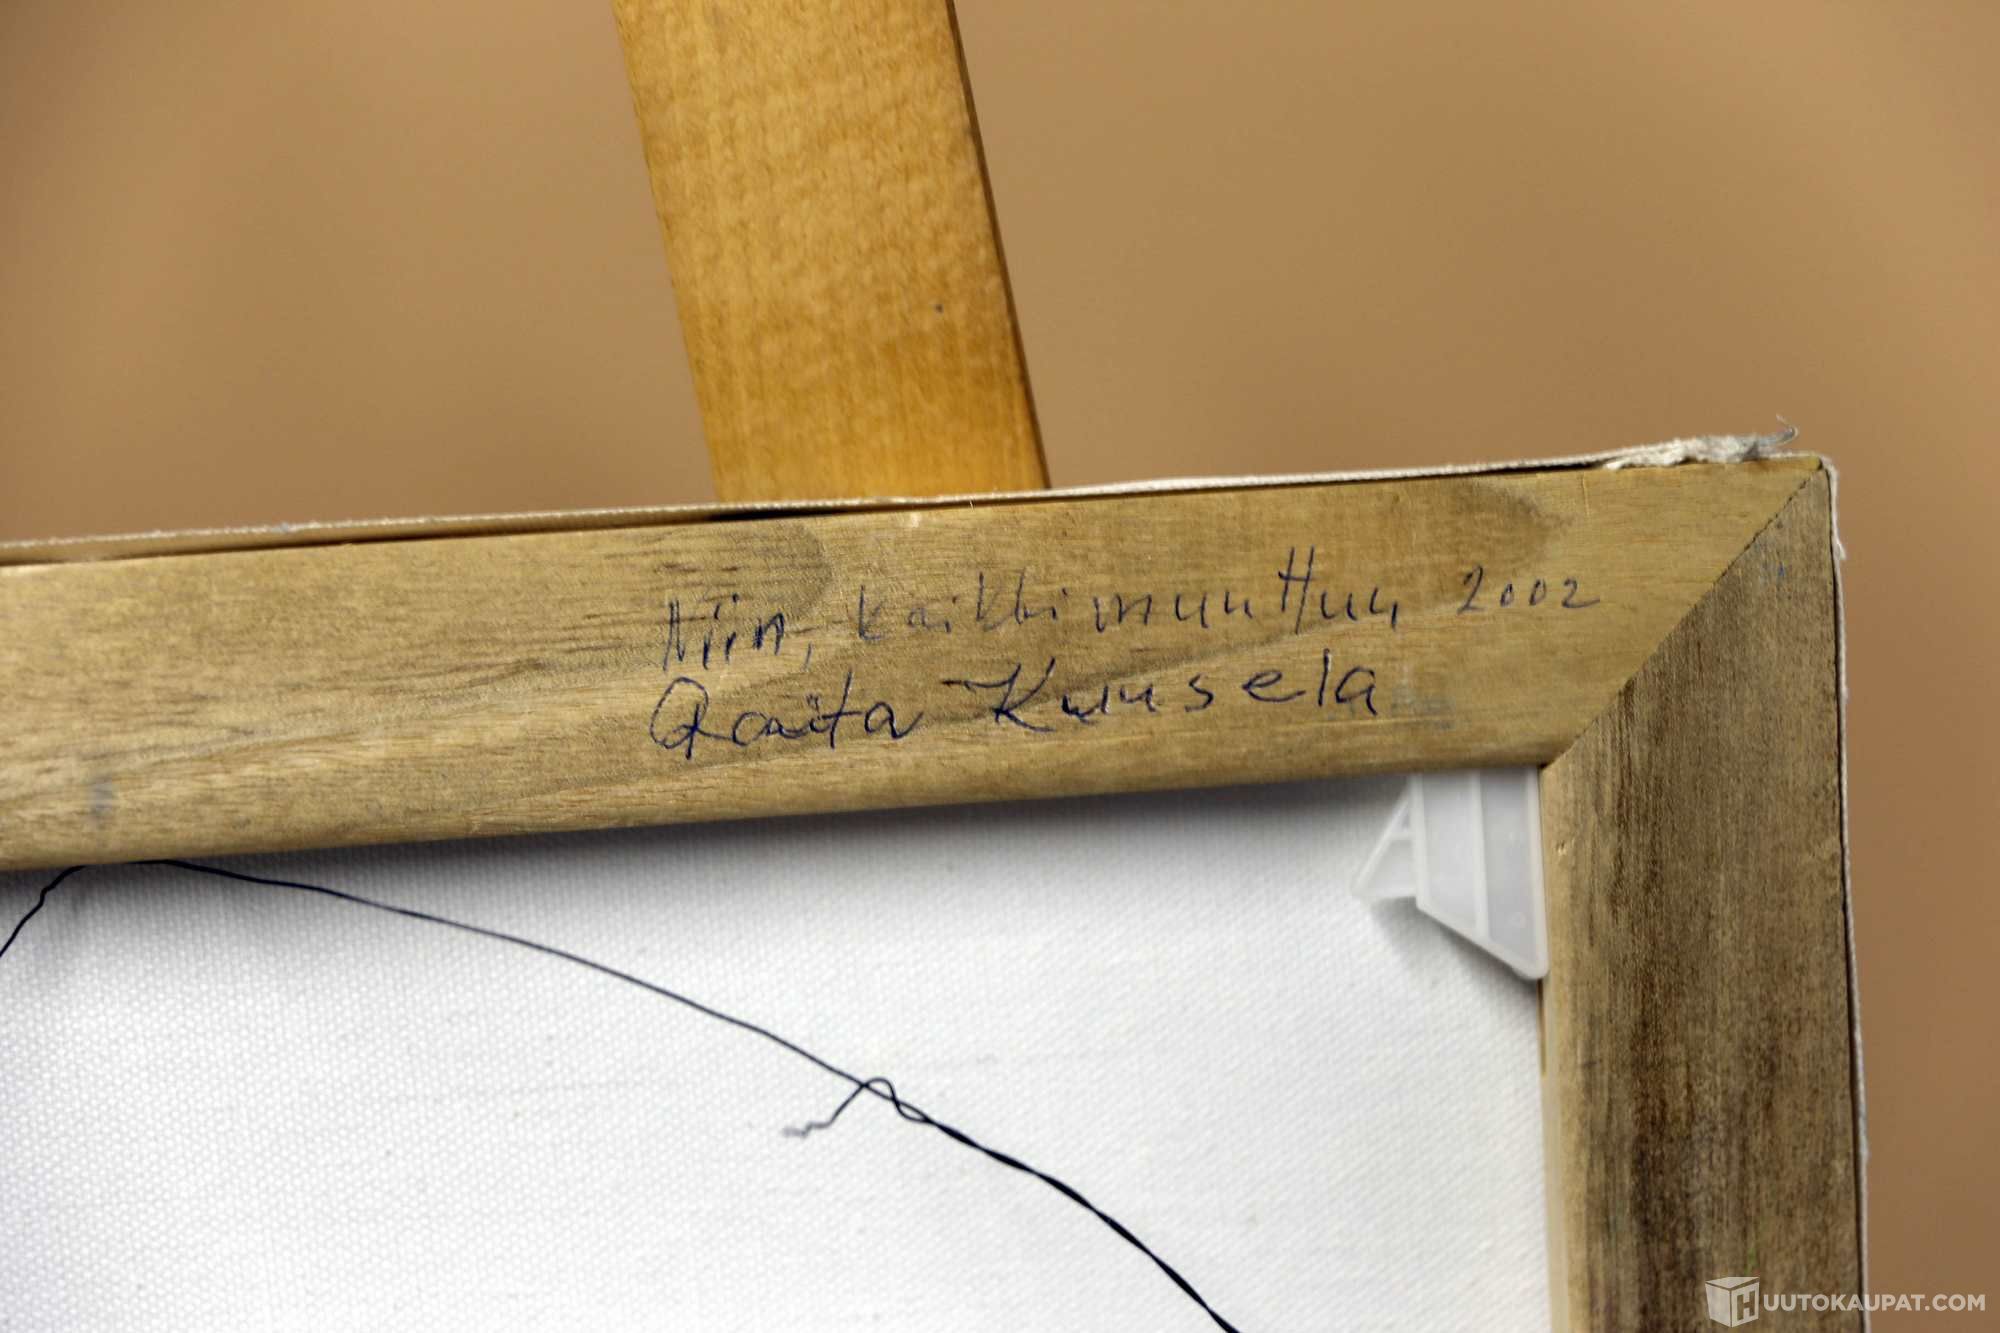 Niin, kaikki muuttuu 2002
Raita Kuusela
HUUTOKAUPAT.COM